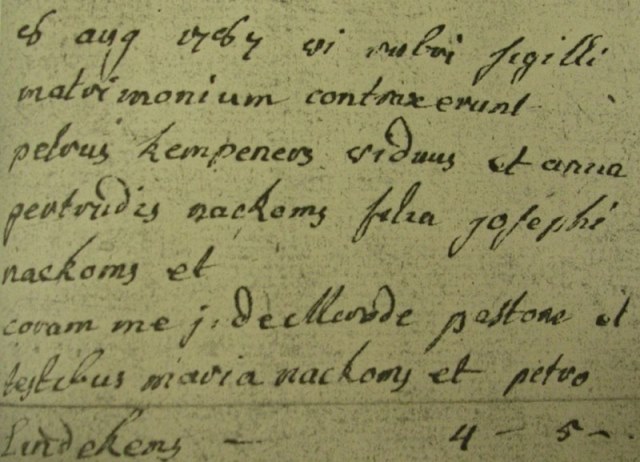 aug 1767 vi rubri sigilli
matrimonium contraxerunt
petrus kempeners viduus et anna
gertrudis nackoms filia josephi
nackoms et
coram me j. de Merode pastore et
testibus maria nackoms et petro
Lindekens — 4 — 5 —